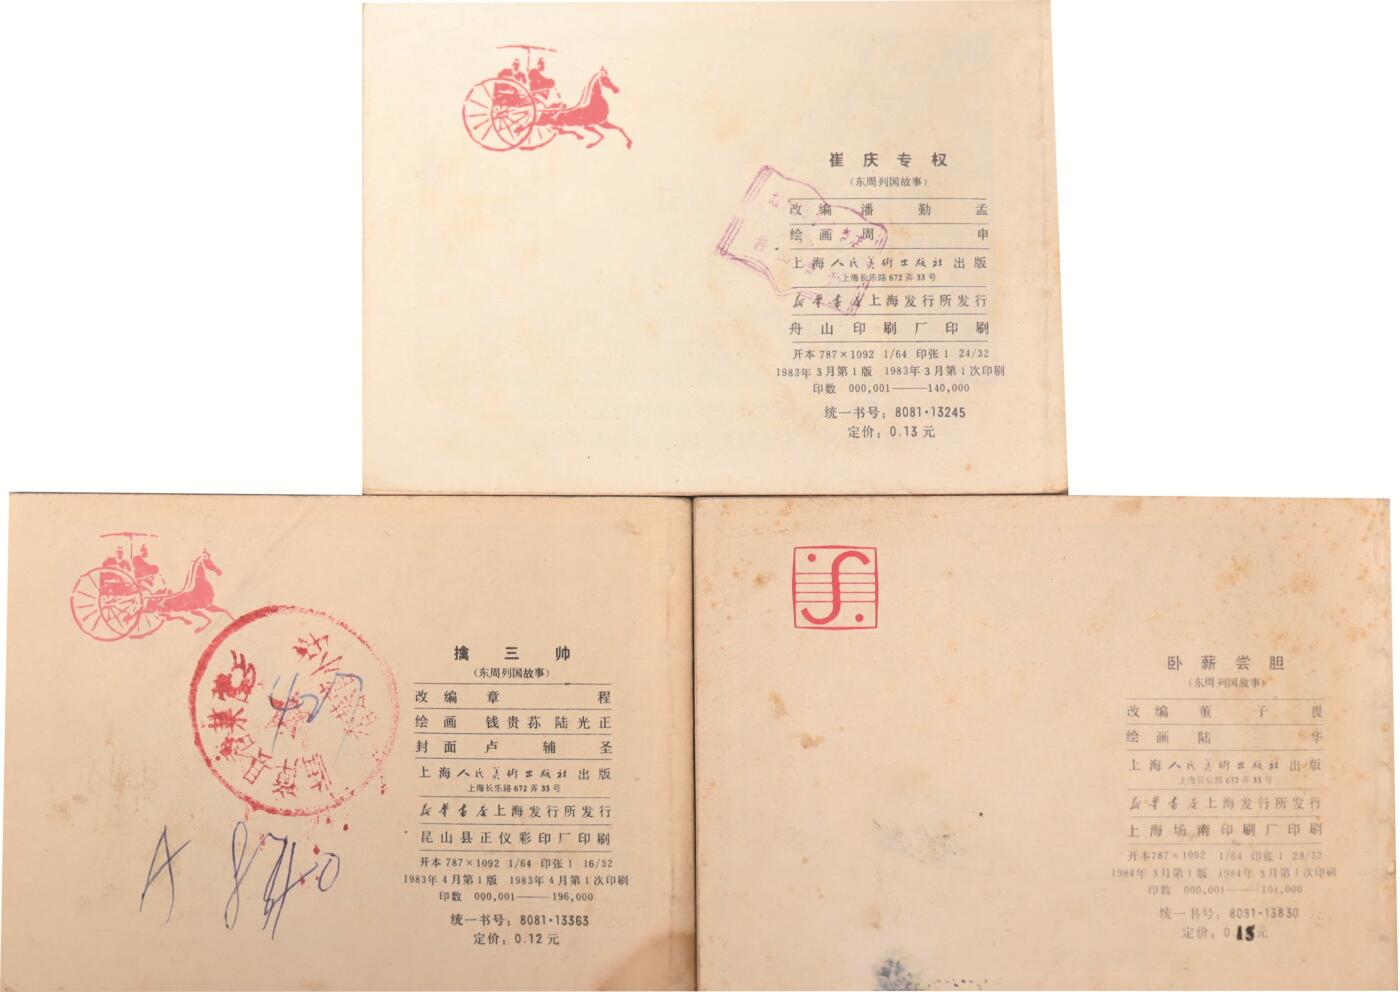 崔庆专权
（东周列国故事）
改编 潘勤孟
绘画 周申
上海人民美術出版社出版
上海长乐路672弄33号
新华書店上海发行所发行
舟山印刷厂印刷
开本 787×1092 1/64 印张 1 24/32
1983年3月第1版 1983年3月第1次印刷
印数 000,001——140,000
统一书号：8081·13245
定价：0.13元
擒三帅
（东周列国故事）
改编 章程
绘画 钱贵荪 陆光正
封面 卢辅圣
上海人民美術出版社出版
上海长乐路672弄33号
新华書店上海发行所发行
昆山县正仪彩印厂印刷
开本 787×1092 1/64 印张 1 16/32
1983年4月第1版 1983年4月第1次印刷
印数 000,001——196,000
统一书号：8081·13363
定价：0.12元
A 8740
卧薪尝胆
（东周列国故事）
改编 董子畏
绘画 陆华
上海人民美術出版社出版
上海长乐路672弄33号
新华書店上海发行所发行
上海场南印刷厂印刷
开本787×1092 1/64 印张 1 28/32
1984年3月第1版 1984年3月第1次印刷
印数 000,001——104,000
统一书号：8081·13830
定价：0.15元